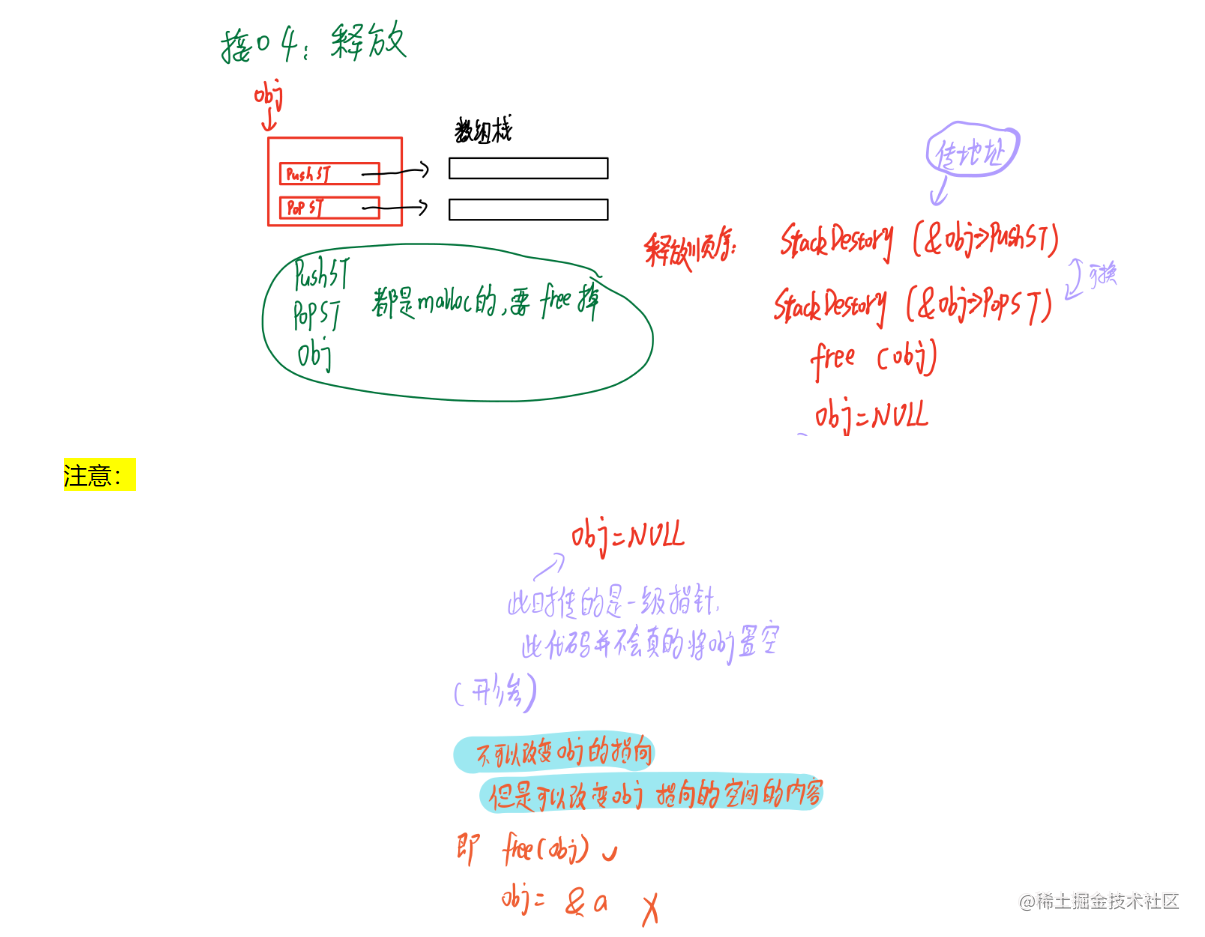 接口4：释放
obj
数组栈
PushST
PoPST
传地址
释放顺序：
StackDestory (&obj->PushST)
StackDestory (&obj->PoPST)
可换
free (obj)
obj=NULL
PushST
PoPST
obj
都是malloc的，要 free 掉
注意：
obj=NULL
此时传的是一级指针.
此代码并不会真的将obj置空
不可以改变obj的指向
但是可以改变obj 指向的空间的内容
即 free(obj) ✓
obj= &a X
@稀土掘金技术社区